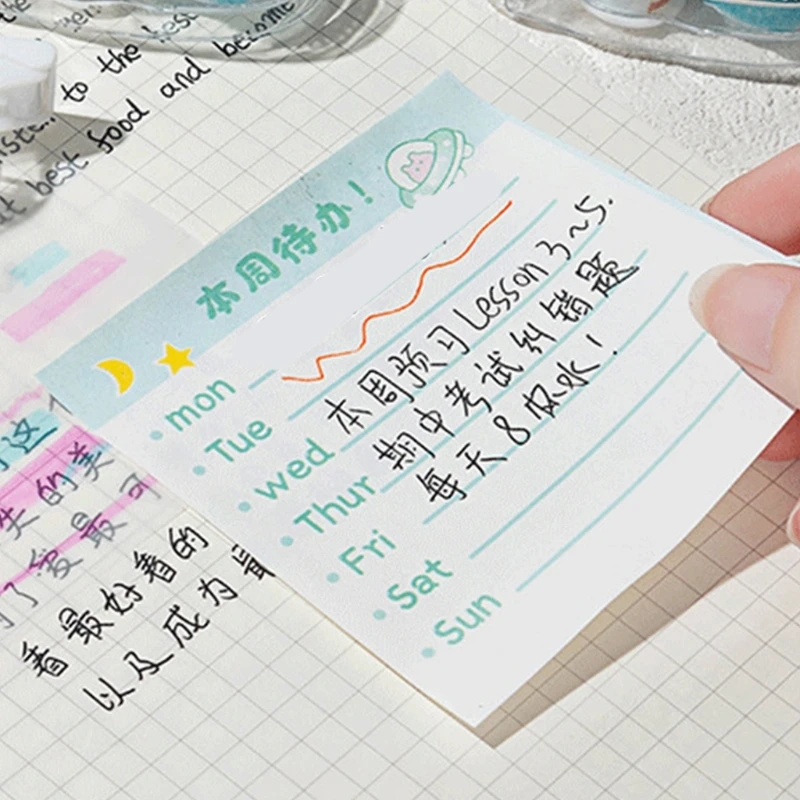 to the best
best food and become
本周待办!
mon
Tue
wed 本周预习Lesson 3~5.
Thur 期中考试纠错题
Fri 每天8杯水!
Sat
Sun
这
的美
最可
看最好看的
以及成为最